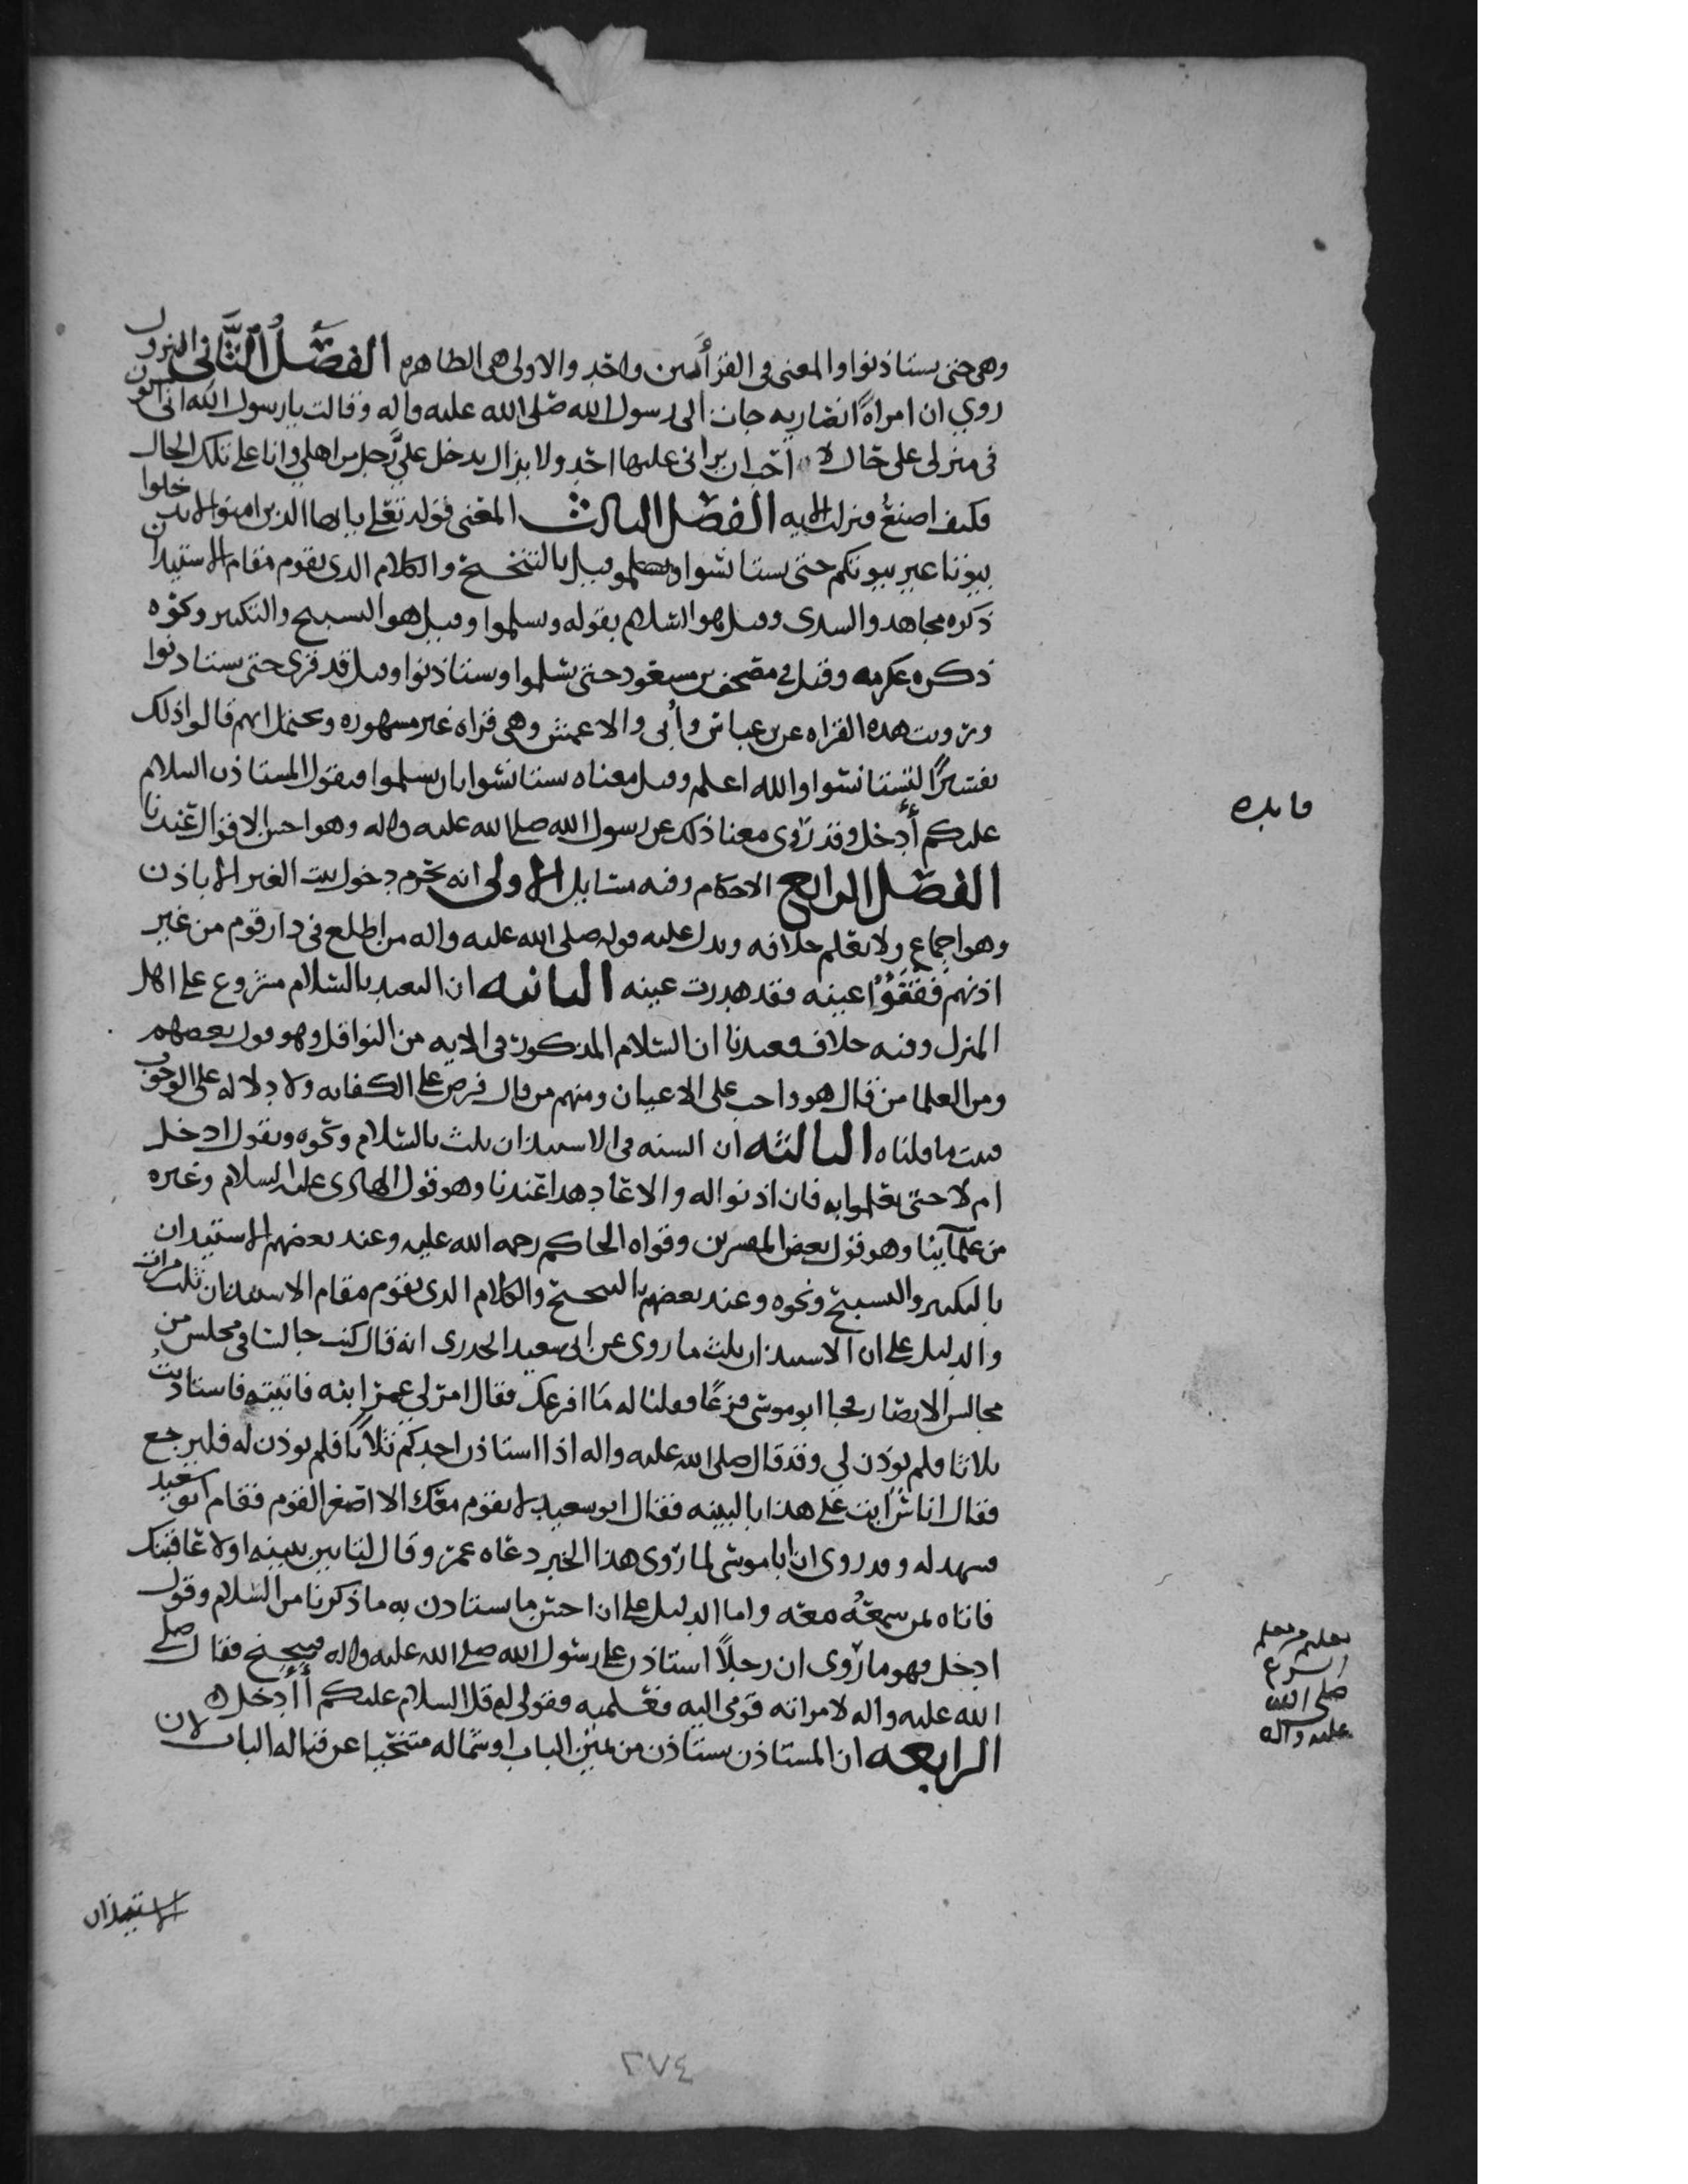 وهى حتى يستاذنوا والمعنى فى القرأتين واحد والاولى هى الظاهره الفصل الثانى النزول
روي ان امراةً انصاريه جات الى رسول الله صلى الله عليه واله وقالت يا رسول الله انى اكون
فى منزلى على حال لا احب ان يرانى عليها احد ولا يزال يدخل عليَّ رجل من اهلي وانا على تلك الحال
فكيف اصنع فنزلت الايه الفصل الثالث المعنى قوله تعلى يا ايها الذين امنوا لا تدخلوا
بيوتا غير بيوتكم حتى يستانسوا قيل بالتنحنح والكلام الذى يقوم مقام الاستيذان
ذكره مجاهد والسدى وقيل هو السلام بقوله وسلموا وقيل هو التسبيح والتكبير ونحوه
ذكره عكرمه وقيل في مصحف بن مسعود حتى تسلموا وتستاذنوا وقيل قد قرى حتى تستاذنوا
ورويت هذه القراه عن بن عباس وأبى والاعمش وهى قراه غير مشهوره ويحتمل انهم قالوا ذلك
تفسيرًا لتستانسوا والله اعلم وقيل معناه تستانسوا بان تسلموا فيقول المستاذن السلام
عليكم أأدخل وقد روى معنا ذلك عن رسول الله صلى الله عليه واله وهو احسن الاقوال عندنا
الفصل الرابع الاحكام وفيه مسايل الاولى انه يحرم دخول بيت الغير الا باذن
وهو اجماع ولا نعلم خلافه ويدل عليه قوله صلى الله عليه واله من اطلع فى دار قوم من غير
اذنهم ففقؤا عينه فقد هدرت عينه الثانيه ان التعبد بالسلام مشروع على اهل
المنزل وفيه خلاف فعندنا ان السلام المذكور فى الايه من النوافل وهو قول بعضهم
ومن العلما من قال هو واجب على الاعيان ومنهم من قال فرض على الكفايه ولا دلاله على الوجوب
فثبت ما قلناه الثالثه ان السنه فى الاستيذان ثلث بالسلام ونحوه ويقول ادخل
ام لا حتى يعلموا به فان اذنوا له والا عاد هذا عندنا وهو قول الهادى عليه السلام وغيره
من علمآئنا وهو قول بعض المفسرين وقواه الحاكم رحمه الله عليه وعند بعضهم الاستيذان
بالتكبير والتسبيح ونحوه وعند بعضهم بالتنحنح والكلام الذى يقوم مقام الاستيذان ثلث مرات
والدليل على ان الاستيذان ثلث ما روى عن ابى سعيد الخدرى انه قال كنت جالسا فى مجلس من
مجالس الانصار فجا ابو موسى فزعًا فقلنا له ما افزعك فقال امرنى عمر اتيه فاتيته فاستاذنت
ثلاثا فلم يوذن لي وقد قال صلى الله عليه واله اذا استاذن احدكم ثلاثا فلم يوذن له فليرجع
فقال على هذا بالبينه فقال ابو سعيد لا يقوم معك الا اصغر القوم فقام ابو سعيد
فشهد له وقد روى ان ابا موسى لما روى هذا الخبر دعاه عمر وقال لتاتين ببينه اولا عاقبتك
فاتاه بمن سمعه معه واما الدليل على ان احسن ما يستاذن به ما ذكرنا من السلام وقول
ادخل فهو ما روى ان رجلاً استاذن على رسول الله صلى الله عليه واله فتنحنح فقال صلى
الله عليه واله لامراته قومى اليه فعلميه فقولى له قل السلام عليكم أأدخل
الرابعه ان المستاذن يستاذن من يمين الباب او شماله متنحيا عن قباله الباب لان
فايده
صلى الله
عليه واله
الاستيذان
٢٧٤